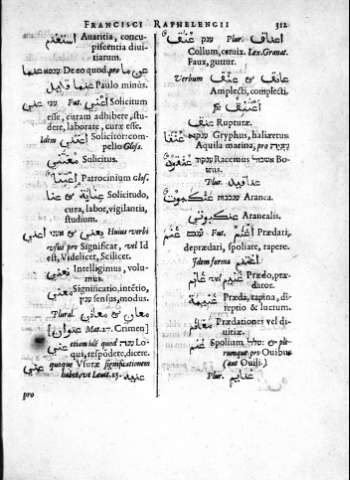 FRANCISCI RAPHELENGII 312
Avaritia, concu-
piscentia divi-
tiarum.
De eo quod. pro عما
Paulo minùs.
Fut. اعتني Solicitum
esse, curam adhibere, stu-
dere, laborate, curæ esse.
Idem اعتني Solicitor: com-
pello Gloss.
معتني Solicitus.
Patrocinium Glos.
عناية & عنا Solicitudo,
cura, labor, vigilantia,
studium.
يعني & اعني Huius verbi
usus pro Significat, vel Id
est, Videlicet, Scilicet.
نعني Intelligimus, volu-
mus.
معني Significatio, intētio,
sensus, modus.
Plural. معان & معاني
[عنوان] Mat. 27. Crimen]
etiam idē quod ענה Lo-
qui, respōdere, dicere.
quoque Vsuræ significationem
habet, vt Levit. 25.
pro
عنق Plur. اعناق
Collum, cervix. Lex. Granat.
Faux, guttur.
Verbum عنق & عانق
Amplecti, complecti.
Rupturæ.
عنقا Gryphus, haliæetus
Aquila marina, pro
عنقود Racemus Bo-
trus.
Plur. عناقيد
عنكبوت Aranea.
عنكبوتي Aranealis.
غنم Fut. Prædari,
deprædari, spoliare, rapere.
Idem forma اغتنم
غانم vel Prædo, præ-
dator.
غنيمة Præda, rapina, di-
reptio & luctum.
Prædationes vel di-
vitiæ.
غنم Spolium. & ple-
rumque pro Ouibus
(aut Ouili.)
Plur. غنايم